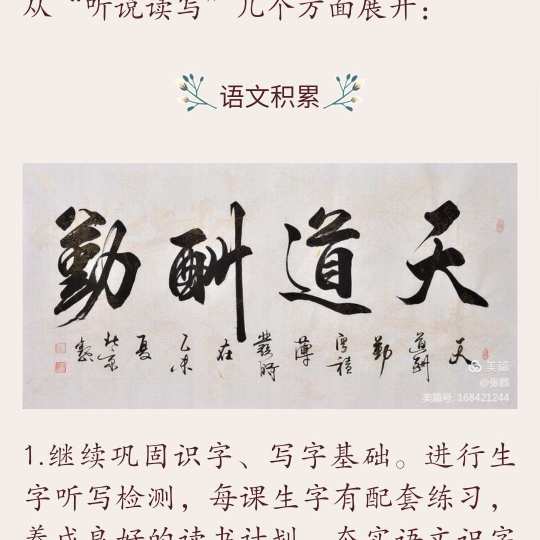 从“听说读写”几个方面展开：
语文积累
天道酬勤
天道酬勤 厚积薄發 时在乙未夏 於京
美篇
@张鹤
美篇号: 168421244
1.继续巩固识字、写字基础。进行生
字听写检测，每课生字有配套练习，
养成良好的读书计划，夯实语文识字